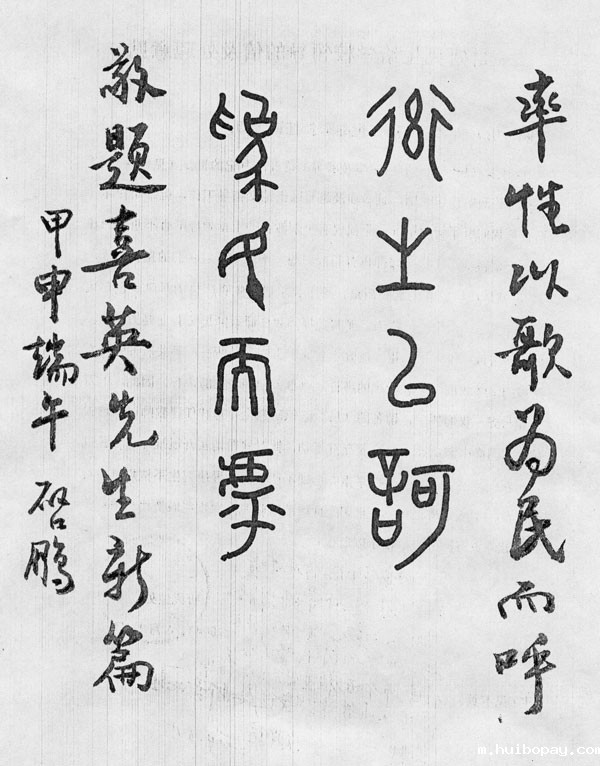 率性以歌为民而呼
率性以訶
為民而虖
敬题喜英先生新篇
甲申端午 启鹏
m.huibopay.com